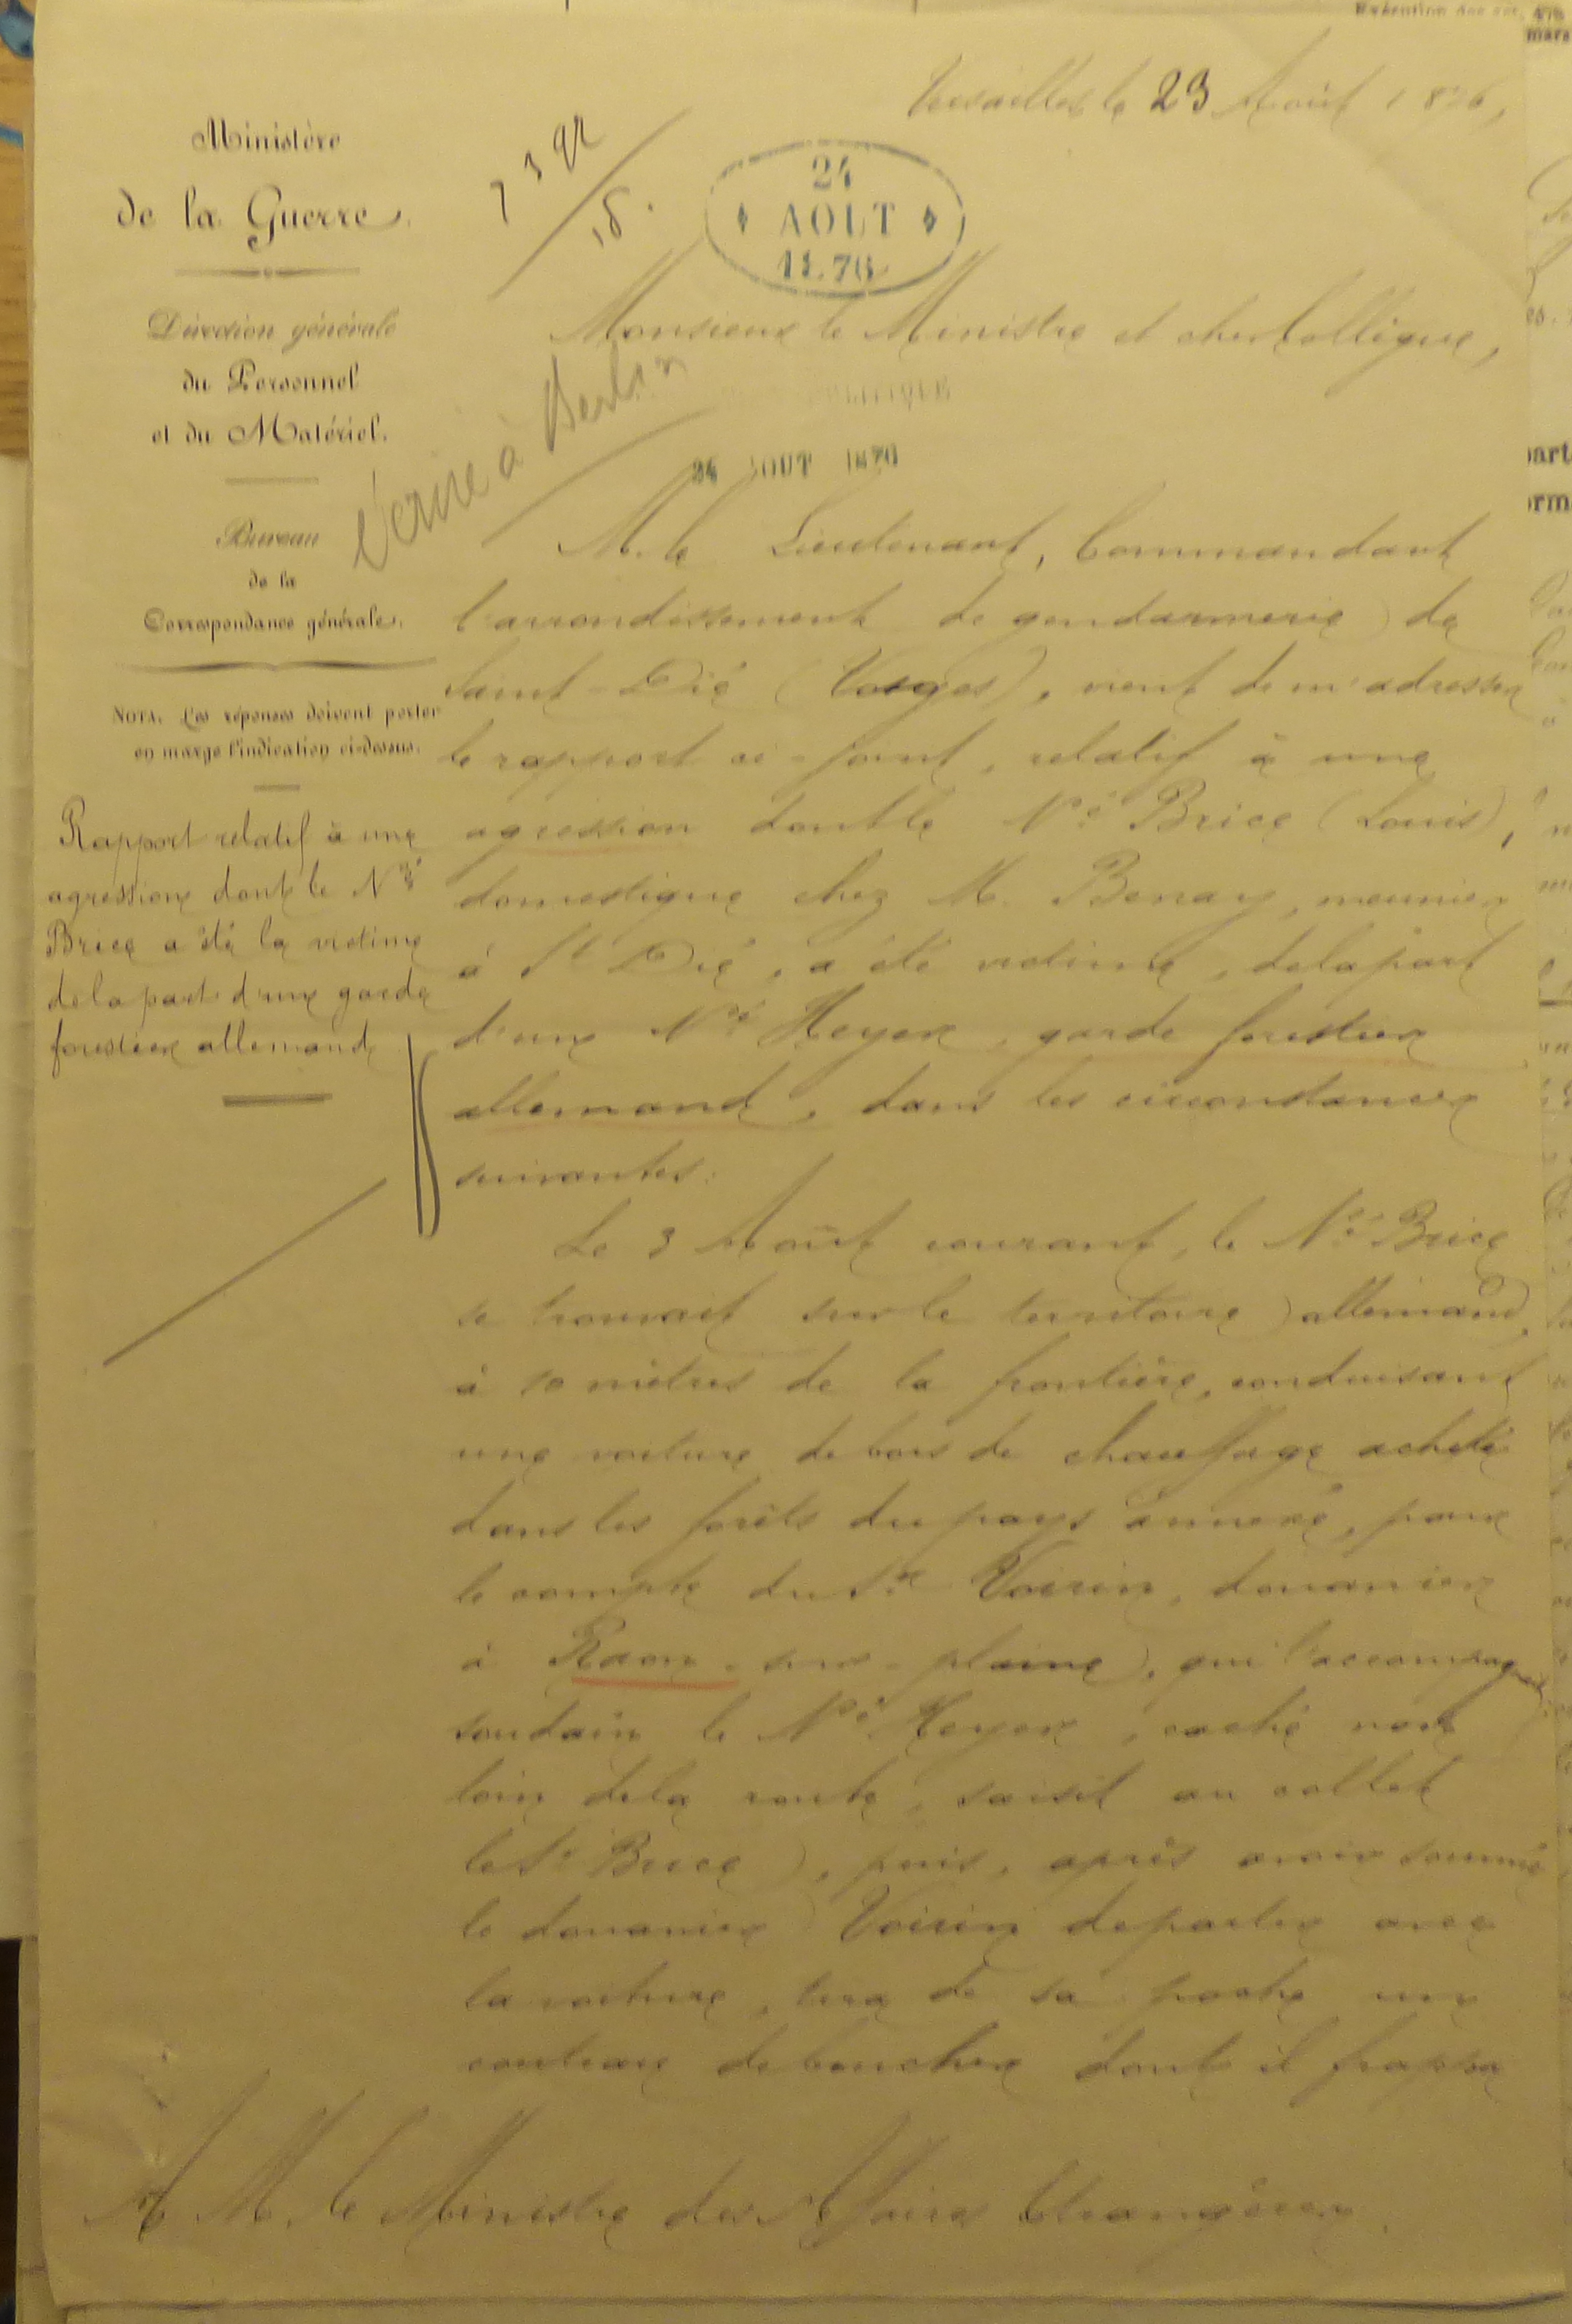 Versailles le 23 Août 1876,
Ministère
de la Guerre.
Direction générale
du Personnel
et du Matériel.
Bureau
de la
Correspondance générale.
NOTA. Les réponses doivent porter
en marge l'indication ci-dessus.
Rapport relatif à une
agression dont le Né
Brice a été la victime
de la part d'un garde
forestier allemand
24
AOUT
1876
écrire à Berlin
POLITIQUE
24 AOUT 1876
Monsieur le Ministre et cher Collègue,
M. le Lieutenant, Commandant
l'arrondissement de gendarmerie de
Saint-Dié (Vosges), vient de m'adresser
le rapport ci-joint, relatif à une
agression dont le Né Brice (Louis),
domestique chez M. Benay, meunier
à St Dié, a été victime, de la part
d'un Né Heyer, garde forestier
allemand, dans les circonstances
suivantes:
Le 3 Août courant, le Né Brice
se trouvait sur le territoire allemand,
à 10 mètres de la frontière, conduisant
une voiture de bois de chauffage acheté
dans les forêts du pays annexé, pour
le compte du Sr Voirin, douanier
à Raon-sur-plaine, qui l'accompagnait,
soudain le Né Heyer, caché non
loin de la route, saisit au collet
le Sr Brice, puis, après avoir sommé
le douanier Voirin de partir avec
la voiture, tira de sa poche un
couteau de boucher dont il frappa
A M. le Ministre des Affaires Etrangères.